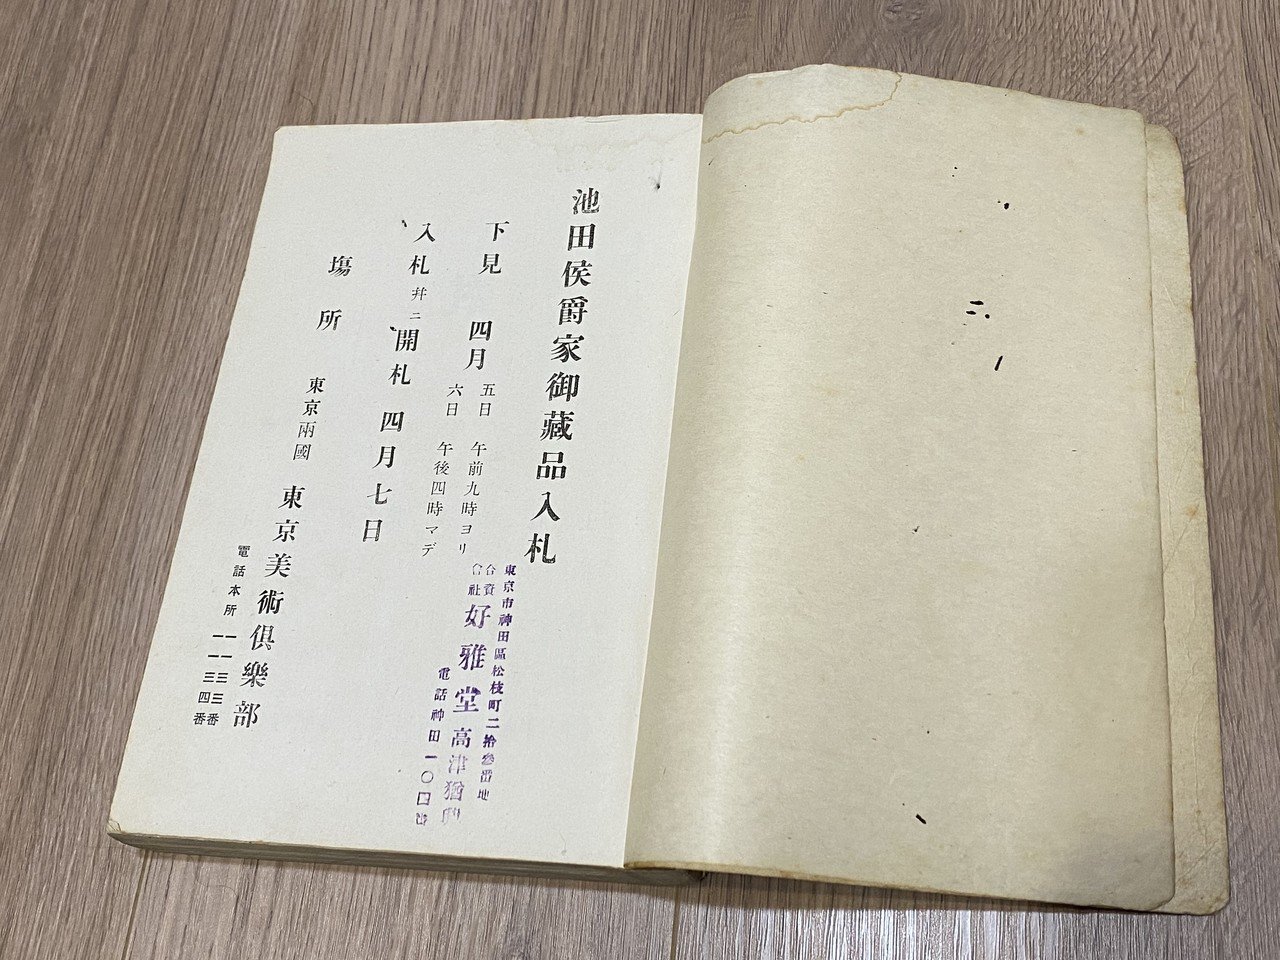 池田侯爵家御藏品入札
下見 四月
五日 午前九時ヨリ
六日 午後四時マデ
入札幷ニ開札 四月七日
塲所 東京兩國 東京美術倶樂部
電話本所
一一三三番
一一三四番
東京市神田區松枝町二拾參番地
合資
會社
好雅堂 高津猶
電話神田一〇四